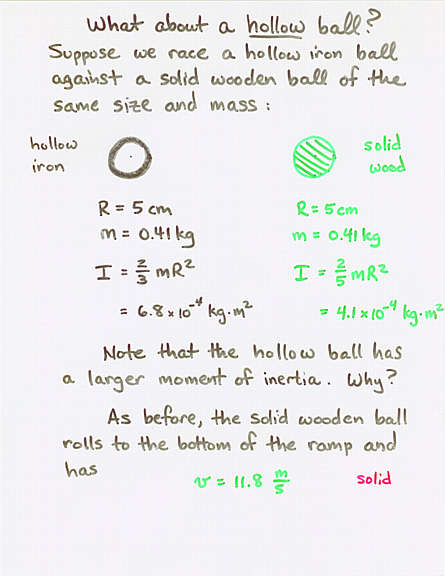 What about a hollow ball?
Suppose we race a hollow iron ball
against a solid wooden ball of the
same size and mass :
hollow iron
solid wood
R = 5 cm
m = 0.41 kg
I = 2/3 mR²
= 6.8 x 10⁻⁴ kg·m²
R = 5 cm
m = 0.41 kg
I = 2/5 mR²
= 4.1 x 10⁻⁴ kg·m²
Note that the hollow ball has
a larger moment of inertia. Why?
As before, the solid wooden ball
rolls to the bottom of the ramp and
has
v = 11.8 m/s solid